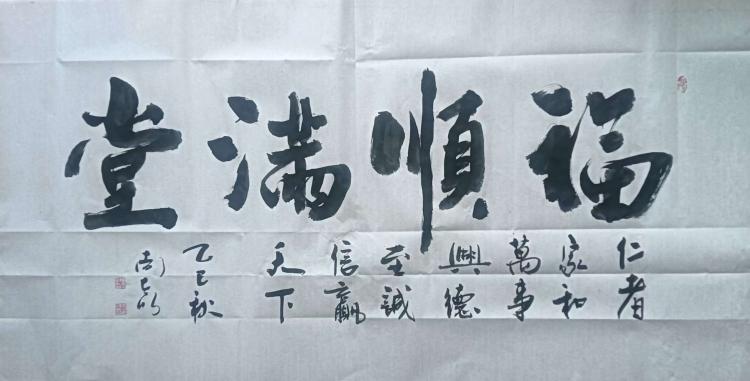 福順滿堂
仁者
家和
萬事
興德
至誠
信贏
天下
乙巳秋